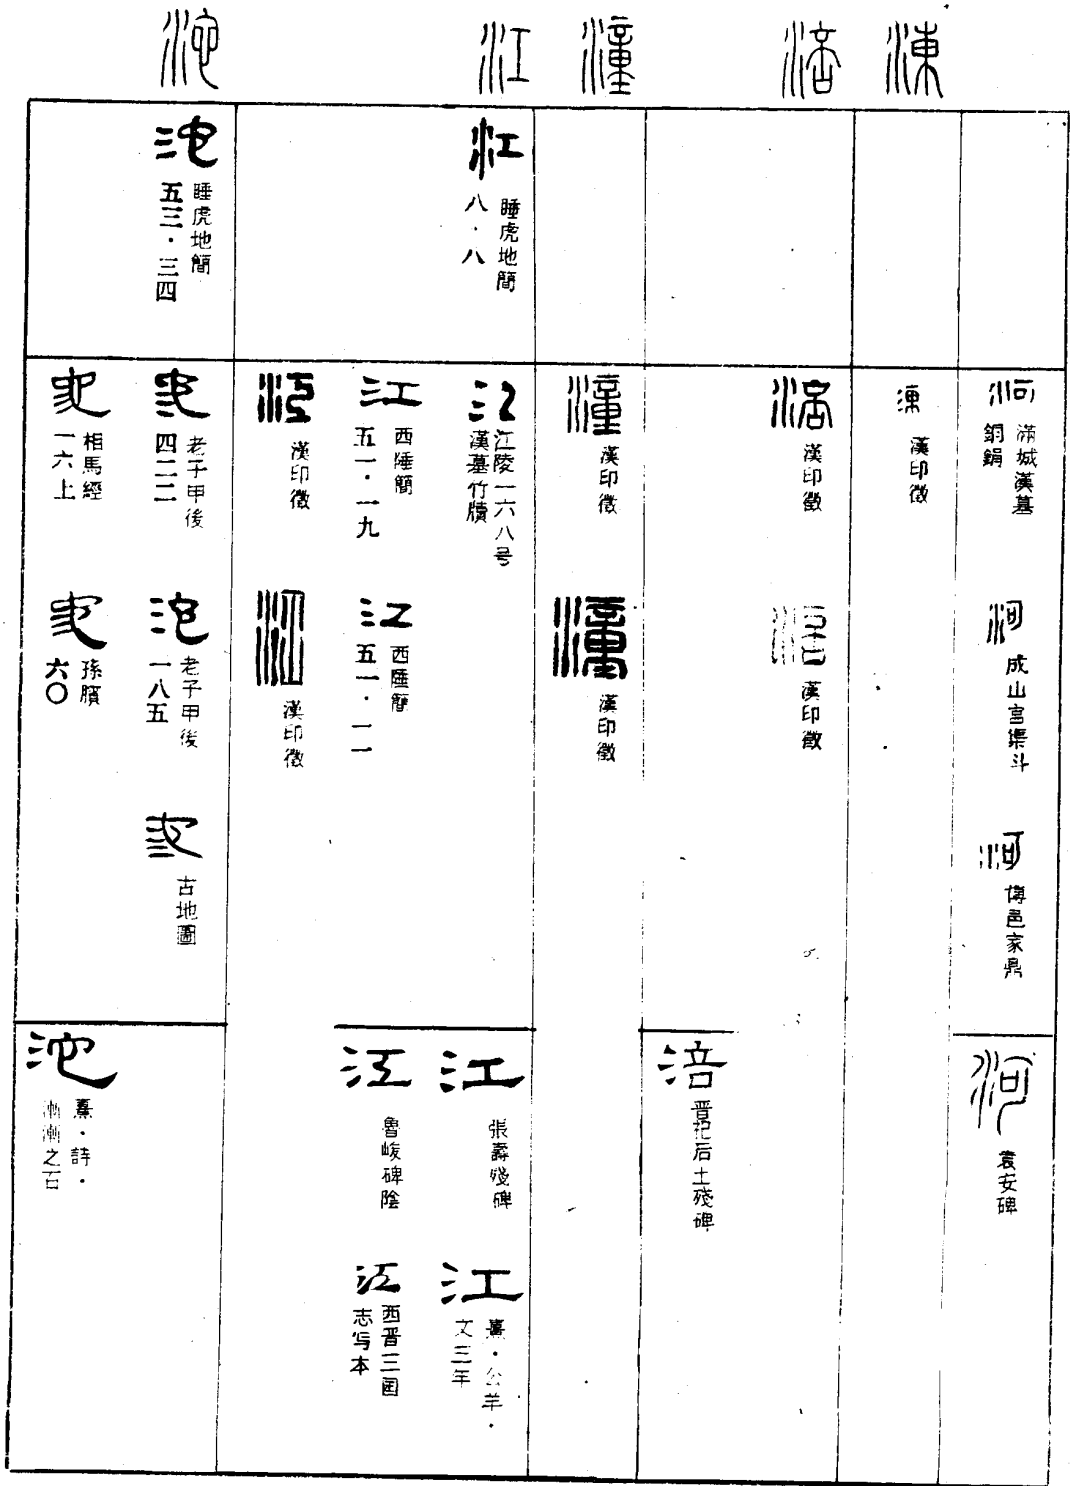 涷
涪
潼
江
沱
河
滿城漢墓
銅鋗
河
成山宮渠斗
河
傅邑家鼎
河
袁安碑
涷
漢印徵
涪
漢印徵
涪
漢印徵
涪
晋祀后土殘碑
潼
漢印徵
潼
漢印徵
江
睡虎地簡
八·八
江
江陵一六八号
漢墓竹牘
江
西陲簡
五一·一九
江
漢印徵
江
西陲簡
五一·一一
江
漢印徵
江
張壽殘碑
江
魯峻碑陰
江
熹·公羊·
文三年
江
西晋三国
志写本
沱
睡虎地簡
五三·三四
沱
老子甲後
四二二
沱
相馬經
一六上
沱
老子甲後
一八五
沱
孫臏
六〇
沱
古地圖
沱
熹·詩·
漸漸之石